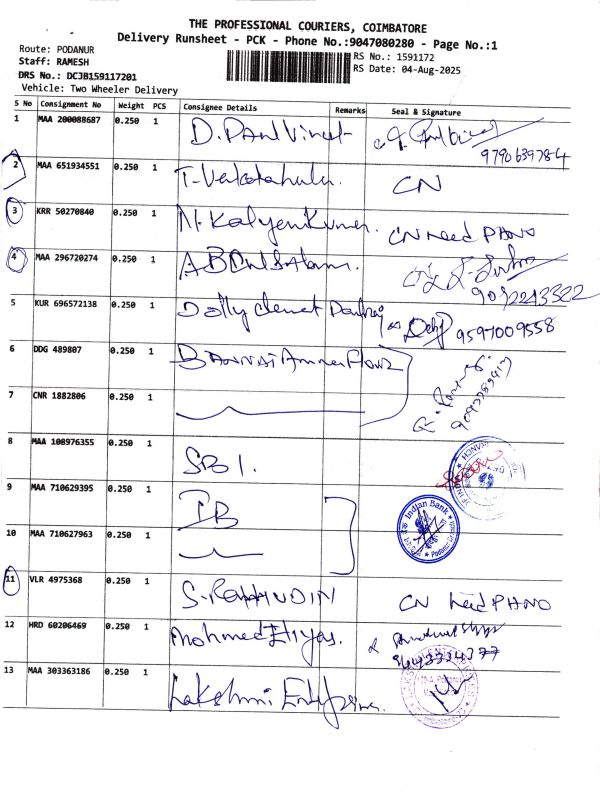 THE PROFESSIONAL COURIERS, COIMBATORE
Delivery Runsheet - PCK - Phone No.:9047080280 - Page No.:1
Route: PODANUR
Staff: RAMESH
DRS No.: DCJB159117201
Vehicle: Two Wheeler Delivery
RS No.: 1591172
RS Date: 04-Aug-2025
S No Consignment No Weight PCS Consignee Details Remarks Seal & Signature
1 MAA 200088687 0.250 1 D. Paul Vincet
9790639784
2 MAA 651934551 0.250 1 CN
3 KRR 50270840 0.250 1 N. KalyenKumar. CN Need PHNO
4 MAA 296720274 0.250 1
9092243322
5 KUR 696572138 0.250 1 Dolly clemet 9597009558
6 DDG 489807 0.250 1 BANNAI Amman Flour
7 CNR 1882806 0.250 1
8 MAA 108976355 0.250 1 SBI.
9 MAA 710629395 0.250 1 IB
Indian Bank
10 MAA 710627963 0.250 1
11 VLR 4975368 0.250 1 CN need PHNO
12 HRD 60206469 0.250 1 Mohmed Eliyas.
13 MAA 303363186 0.250 1 Lakshmi Enterprises.